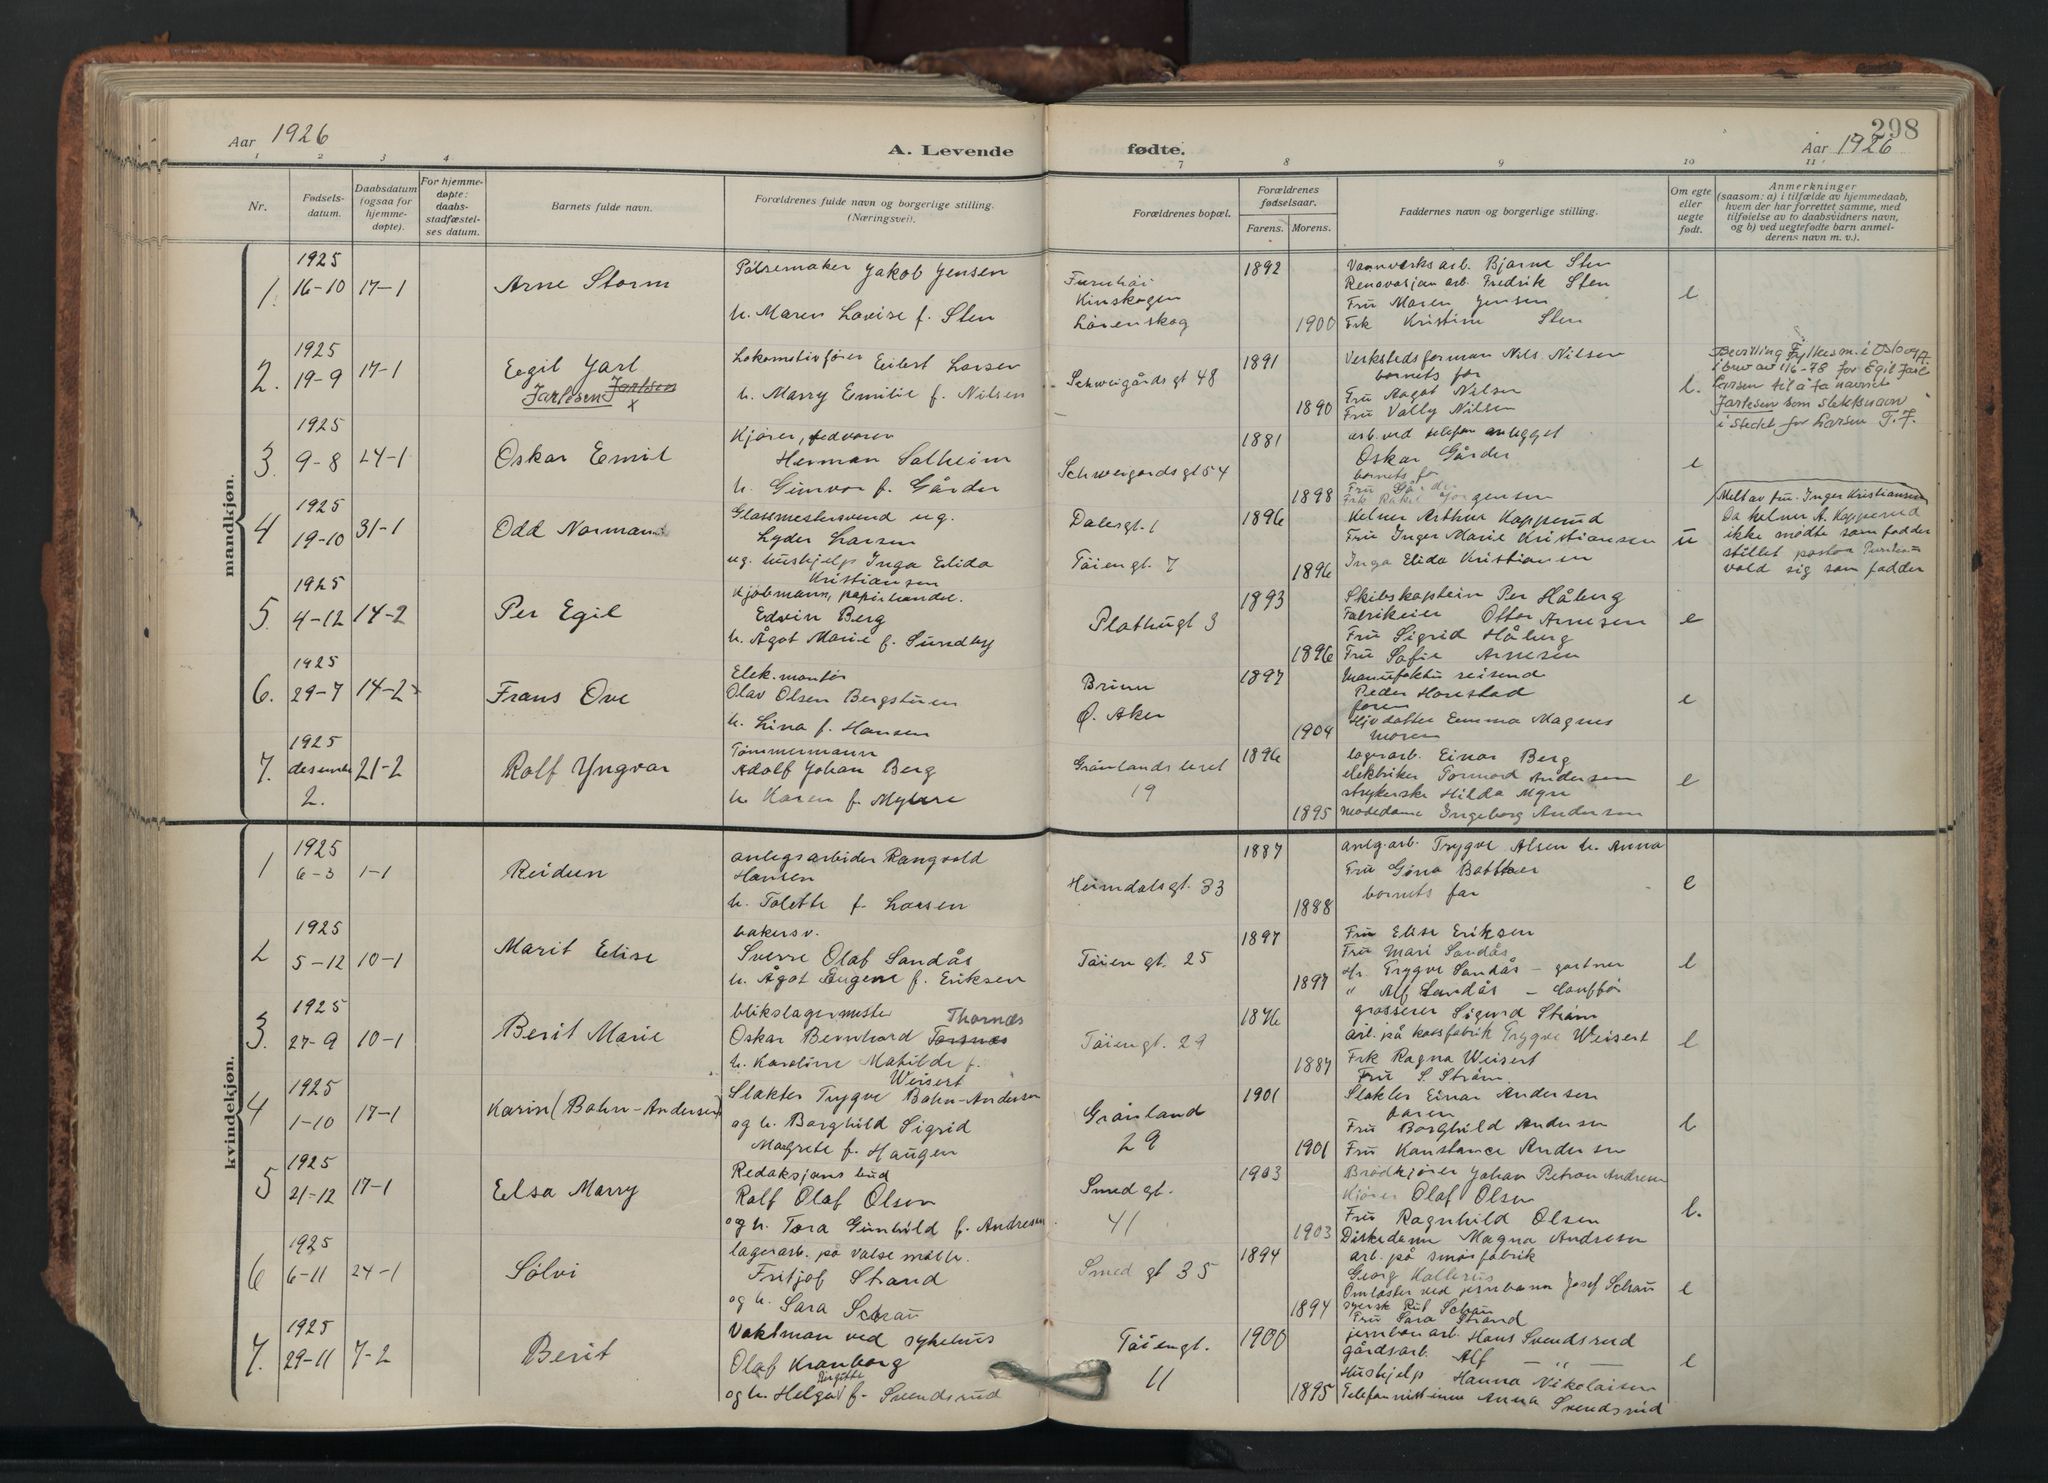 298
Aar 1926
A. Levende
fødte.
Aar 1926
1 2 3 4 7 8 9 10 11
Nr.
Fødsels-
datum.
Daabsdatum
(ogsaa for
hjemme-
døpte).
For hjemme-
døpte:
daabs-
stadfæstel-
ses datum.
Barnets fulde navn.
Forældrenes fulde navn og borgerlige stilling.
(Næringsvei).
Forældrenes bopæl.
Forældrenes
fødselsaar.
Farens. Morens.
Faddernes navn og borgerlige stilling.
Om egte
eller
uegte
født.
Anmerkninger
(saasom: a) i tilfælde av hjemmedaab,
hvem der har forrettet samme, med
tilføielse av to daabsvidners navn,
og b) ved uegtefødte barn anmel-
derens navn m. v.).
mandkjøn.
1.
1925
16-10
17-1
Arne Storm
Pølsemaker Jakob Jensen
h. Maren Lovise f. Sten
Furuhøi
Kinskogen
Lørenskog
1892
1900
Vannverksarb. Bjarne Sten
Renovasjon arb. Fredrik Sten
Fru Maren Jensen
Frk Kristine Sten
e
2.
1925
19-9
17-1
Egil Jarl
Jarlesen Jarlsen
x
Lokomotivfører Eilert Larsen
h. Marry Emilie f. Nilsen
Schweigårdsgt 48
1891
1890
Verkstedsforman Nils Nilsen
barnets far
Fru Aagot Nilsen
Fru Vally Nilsen
e.
Bevilling Fylkesm. i Oslo og A.
i brev av 1/6-78 for Egil Jarl
Larsen til å ta navnet
Jarlesen som slektsnavn
i stedet for Larsen T.F.
3.
1925
9-8
24-1
Oskar Emil
Kjører, vedvaren
Herman Solheim
h. Gunvor f. Gårder
Schweigårdsgt 54
1881
1898
arb. ved telefon anlegget
Oskar Gårder
barnets far
Fru Gårder
Frk Rakel Jørgensen
e
4
1925
19-10
31-1
Odd Norman
Glassmestersvend ug.
Lyder Larsen
ug. hushjelp Inga Elida
Kristiansen
Dalesgt. 1
Tøiengt. 7
1896
1896
Kelner Arthur Kopperud
Fru Inger Marie Kristiansen
Inga Elida Kristiansen
u
Melt av fru. Inger Kristiansen
Da kelner A. Kopperud
ikke møtte som fadder
stillet pastor
vold sig som fadder
5.
1925
4-12
14-2
Per Egil
Kjøbmann, papirhandel.
Edvin Berg
h. Ågot Marie f. Sundby
Plathugt 3
1893
1896
Skibskaptein Per Håberg
Fabrikeier Otto Arnesen
Fru Sigrid Håberg
Fru Sofie Arnesen
e
6.
1925
29-7
14-2
Frans Ove
Elek. montør
Olav Olsen Bergstuen
h. Lina f. Hansen
Brunn
Ø. Aker
1897
1904
Manufaktur reisend
Peder Honstad
faren
Hjv datter Emma Magnus
moren
e
7.
1925
desember
2.
21-2
Rolf Yngvar
Tømmermann
Adolf Johan Berg
h. Karen f. Myhre
Grønlandsleret
19
1896
1895
lagerarb. Einar Berg
elektriker Tormod Andersen
strykerske Hilda Myre
motedame Ingeborg Andersen
e
kvindekjøn.
1
1925
6-3
1-1
Reidun
anlegsarbider Rangvald
Hansen
h. Tolette f. Larsen
Heimdalsgt. 33
1887
1888
anlg.arb. Trygve Olsen h. Anna
Fru Gina
barnets far
e
2
1925
5-12
10-1
Marit Elise
bakersv.
Sverre Olaf Sandås
h. Ågot Eugene f. Eriksen
Tøiengt. 25
1897
1897
Fru Elise Eriksen
Fru Mari Sandås
Hr. Trygve Sandås - gartner
" Alf Sandås - Chauffør
e
3.
1925
27-9
10-1
Berit Marie
blikslagermester Thornæs
Oskar Bernhard Torsnæs
h. Karoline Matilde f.
Weisert
Tøiengt. 29
1876
1887
grosserer Sigurd Strøm
arb. på kassfabrik Trygve Weisert
Frk Ragna Weisert
Fru S. Strøm
e
4
1925
1-10
17-1
Karin (Bahn-Andersen)
Slakter Trygve Bahn-Andersen
og h. Borghild Sigrid
Magrete f. Haugen
Grønland
29
1901
1901
Slakter Einar Andersen
faren
Fru Borghild Andersen
Fru Konstance Andersen
e
5
1925
21-12
17-1
Elsa Marry
Redaksjonsbud
Rolf Olaf Olsen
og h. Tora Gunhild f. Andresen
Smedgt.
41
1903
1903
Brødkjører Johan Petron Andresen
Kjører Olaf Olsen
Fru Ragnhild Olsen
Diskedame Magna Andresen
e.
6
1925
6-11
24-1
Sølvi
lagerarb. på Valsemølle.
Fritjof Strand
og h. Sara Schau
Smedgt 35
1894
1894
arb. på smørfabrik
Georg Kallerus
Omlaster ved jernbann Josef Schau
syersk Rut Schau
Fru Sara Strand
e
7.
1925
29-11
7-2
Berit
Vaktman ved sykehus
Olaf Kranborg
Birgitte
og h. Helga f. Svendsrud
Tøiengt.
11
1900
1895
jernban arb. Hans Svendsrud
gårdsarb. Alf - " -
Hushjelp Hanna Nikolaisen
Telefonistinne Anna Svendsrud
e